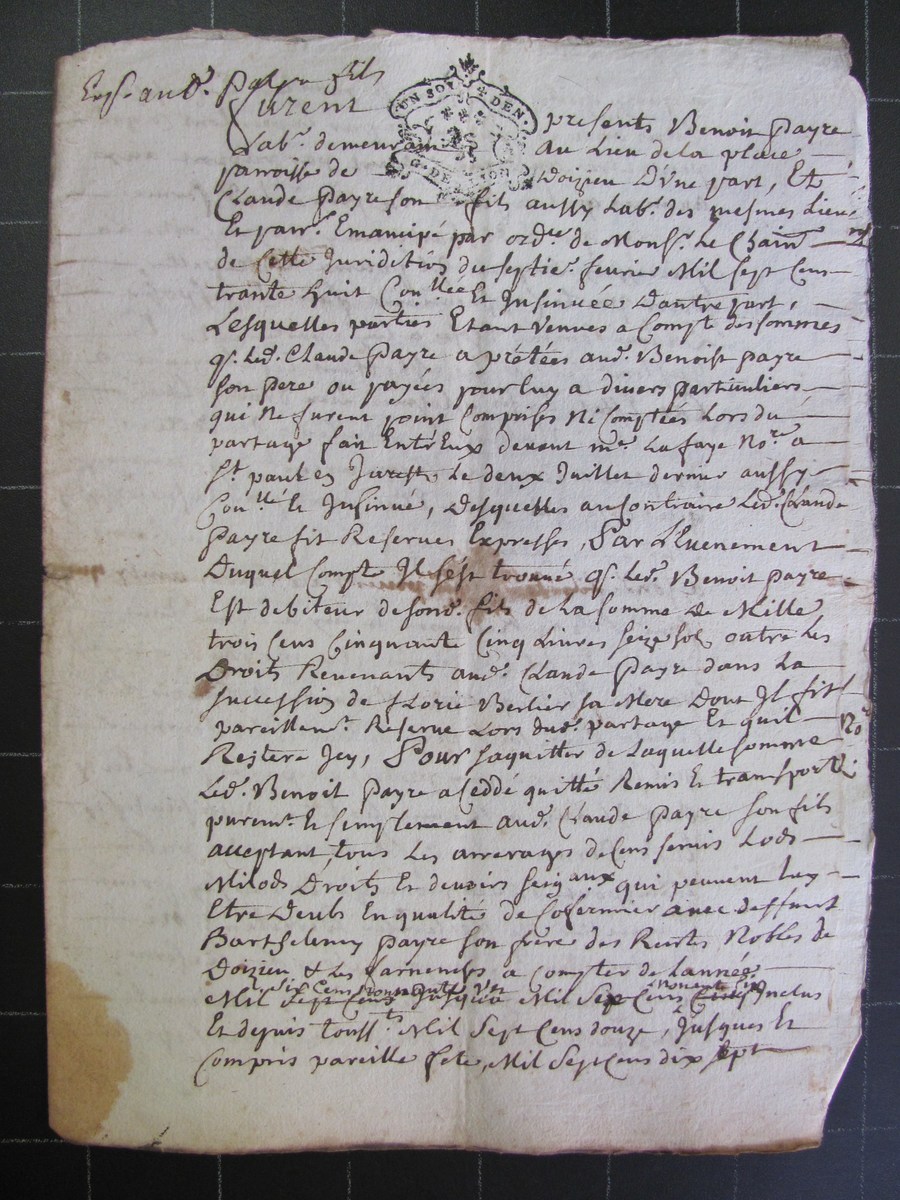 Exp. aud. Payre fils
furent
UN SOL 4 DEN.
G. DE LYON
presents Benoit Payre
Lab.r demeurant au Lieu de la place
paroisse de Doizieu D'une part, Et
Claude Payre son fils aussy Lab.r des mesmes Lieu
Et parr.e Emancipé par ord.ce de Mons.r Le Chatn
de Cette Juridition du septie.e fevrier Mil sept Cens
trante huit Con.llée Et Insinuée Dautre part,
Lesquelles parties Etant venues a Compte des sommes
q. Led. Claude Payre a prétées aud. Benoist payre
son pere ou payées pour luy a divers particuliers
qui ne furent point Comprises Ni Comptées Lors du
partage fait Entr'Eux devant m.e Lafaye No.re a
St. paul en Jarest Le deux Juillet dernier aussy
Con.llé Et Insinué, Desquelles au contraire Led. Claude
Payre fit Reserves Expresses, Par L'Evenement
Duquel Compte Il s'est trouvé q. Led. Benoit payre
Est debiteur de sond. fils de La somme de Mille
trois Cens Cinquante Cinq Livres seize sol outre Les
Droits Revenants aud. Claude Payre dans La
succession de Florie Berlier sa Mere Dont Il fit
pareillem.t Reserve Lors dud. partage Et quil
Reitere Icy, Pour saquitter de Laquelle somme
Led. Benoit Payre a Ceddé quitté Remis Et transporté
purem.t Et simplement aud. Claude Payre son fils
acceptant, tous Les arrerages de Cens servis Lods
Milods Droits Et devoirs seig.aux qui peuvent Luy
Etre Deubs En qualité de sofermier avec deffunt
Barthelemy Payre son frere des Rentes Nobles de
Doizieu & Les farnenches a compter de Lannée
six Cens nonante nonent six
Mil sept Cens Jusques Mil Sept Cens Inclus
Et depuis touss.ts Mil Sept Cens douze, Jusques Et
Compris pareille fete, Mil Sept Cens dix sept